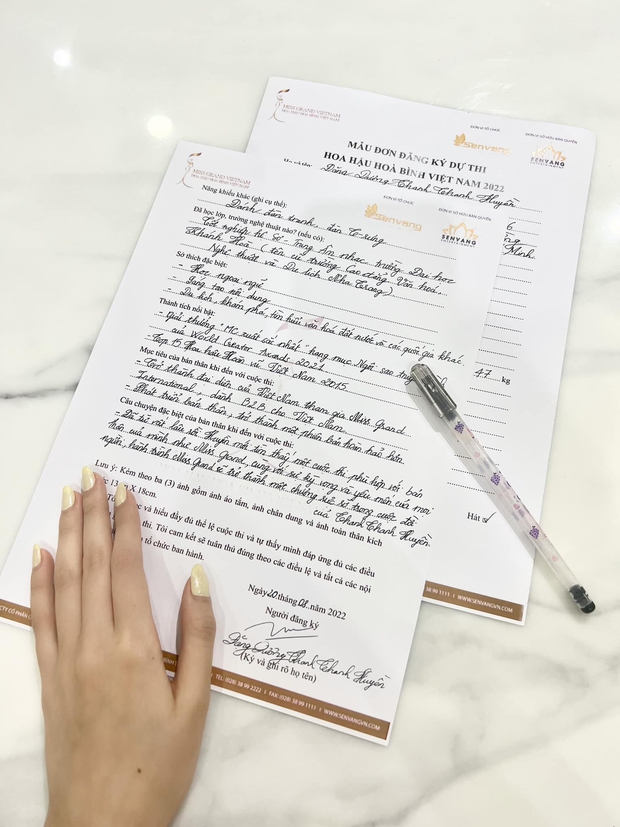 MISS GRAND VIETNAM
HOA HẬU HÒA BÌNH VIỆT NAM
ĐƠN VỊ TỔ CHỨC
Senvang
ĐƠN VỊ SỞ HỮU BẢN QUYỀN
SENVANG
MẪU ĐƠN ĐĂNG KÝ DỰ THI
HOA HẬU HOÀ BÌNH VIỆT NAM 2022
Đặng Dương Thanh Thanh Huyền
Minh
47 kg
Hát ✓
38 99 1111 I WWW.SENVANGVN.COM
MISS GRAND VIETNAM
ĐƠN VỊ TỔ CHỨC
senvang
ĐƠN VỊ SỞ HỮU BẢN QUYỀN
SENVANG
Năng khiếu khác (ghi cụ thể):
Đánh đàn tranh, đàn T'rưng
Đã học lớp, trường nghệ thuật nào? (nếu có):
Tốt nghiệp hệ Sơ - Trung Âm nhạc trường Đại học
Khánh Hoà (tên cũ trường Cao đẳng Văn hoá,
Nghệ thuật và Du lịch Nha Trang)
Sở thích đặc biệt:
- Học ngoại ngữ
- Sáng tạo nội dung
- Du lịch, khám phá, tìm hiểu văn hoá đất nước và các quốc gia khác
Thành tích nổi bật:
- Giải thưởng "MC xuất sắc nhất" hạng mục Ngôi sao
của World Creator Awards 2021
- Top 15 Hoa hậu Hoàn vũ Việt Nam 2015
Mục tiêu của bản thân khi đến với cuộc thi:
- Trở thành đại diện của Việt Nam tham gia Miss Grand
International, dành B2B cho Việt Nam
- Phát triển bản thân, trở thành một phiên bản hoàn hảo hơn
Câu chuyện đặc biệt của bản thân khi đến với cuộc thi:
- Đã từ rất lâu rồi Huyền mới tìm thấy một cuộc thi phù hợp với bản
thân của mình như Miss Grand, cùng với sự kỳ vọng và yêu mến của mọi
người, hành trình Miss Grand sẽ trở thành một đường rực rỡ trong cuộc đời
của Thanh Thanh Huyền
Lưu ý: Kèm theo ba (3) ảnh gồm ảnh áo tắm, ảnh chân dung và ảnh toàn thân kích
13 X 18cm.
và hiểu đầy đủ thể lệ cuộc thi và tự thấy mình đáp ứng đủ các điều
thi. Tôi cam kết sẽ tuân thủ đúng theo các điều lệ và tất cả các nội
tổ chức ban hành.
Ngày 20 tháng 08 năm 2022
Người đăng ký
Đặng Dương Thanh Thanh Huyền
(Ký và ghi rõ họ tên)
TEL: (028) 38 99 2222 I FAX: (028) 38 99 1111 I WWW.SENVANGVN.COM